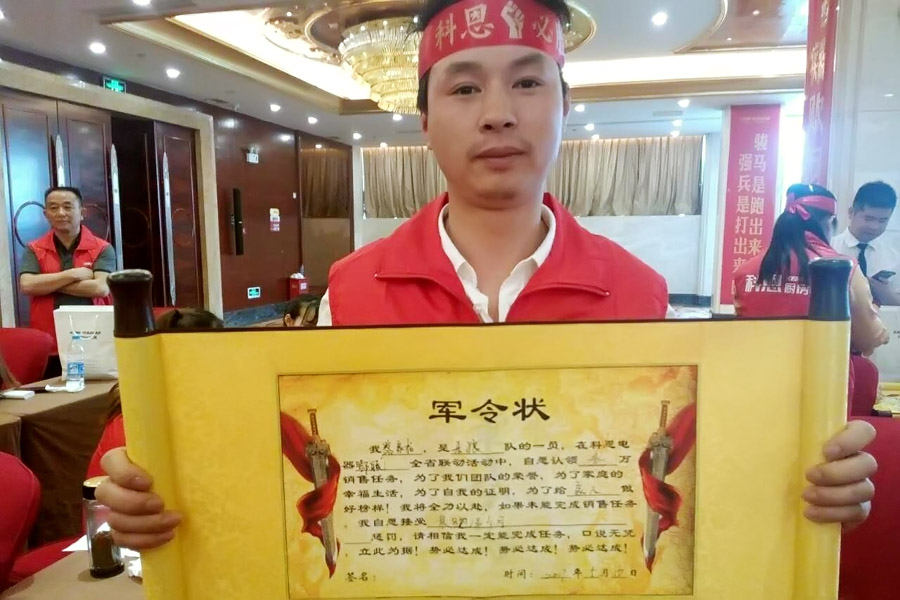 科恩 必
骏马是跑出来
强兵是打出来
科恩厨房
军令状
我 ，是 队的一员，在科恩电
器 全省联动活动中，自愿认领 万
销售任务，为了我们团队的荣誉，为了家庭的
幸福生活，为了自我的证明，为了给 做
好榜样！我将全力以赴，如果未能完成销售任务
我自愿接受
惩罚，请相信我一定能完成任务，口说无凭
立此为据！势必达成！势必达成！势必达成！
签名： 时间：2017年 月 日